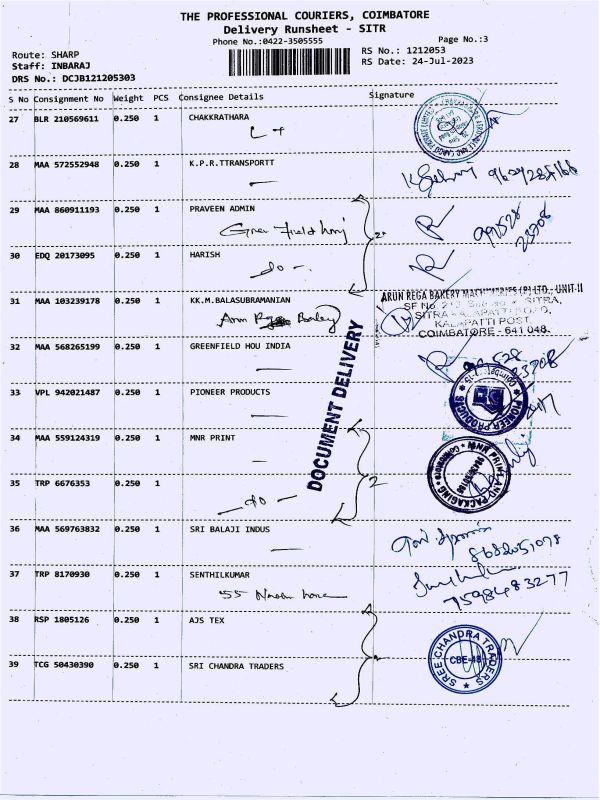 THE PROFESSIONAL COURIERS, COIMBATORE
Delivery Runsheet - SITR
Phone No.:0422-3505555
Page No.:3
Route: SHARP
RS No.: 1212053
Staff: INBARAJ
RS Date: 24-Jul-2023
DRS No.: DCJB121205303
S No Consignment No Weight PCS Consignee Details Signature
27 BLR 210569611 0.250 1 CHAKKRATHARA
28 MAA 572552948 0.250 1 K.P.R.TTRANSPORTT
29 MAA 860911193 0.250 1 PRAVEEN ADMIN
30 EDQ 20173095 0.250 1 HARISH
31 MAA 103239178 0.250 1 KK.M.BALASUBRAMANIAN
ARUN REGA BAKERY MACHINARIES (P) LTD., UNIT-II
SITRA
KALAPATTI POST,
COIMBATORE - 641 048.
32 MAA 568265199 0.250 1 GREENFIELD HOU INDIA
33 VPL 942021487 0.250 1 PIONEER PRODUCTS
PIONEER PRODUCTS
DOCUMENT DELIVERY
34 MAA 559124319 0.250 1 MNR PRINT
MNR PRINT AND PACKAGING
35 TRP 6676353 0.250 1
2
36 MAA 569763832 0.250 1 SRI BALAJI INDUS
8682051078
37 TRP 8170930 0.250 1 SENTHILKUMAR
7598483277
38 RSP 1805126 0.250 1 AJS TEX
39 TCG 50430390 0.250 1 SRI CHANDRA TRADERS
SREE CHANDRA TRADERS
CBE-48